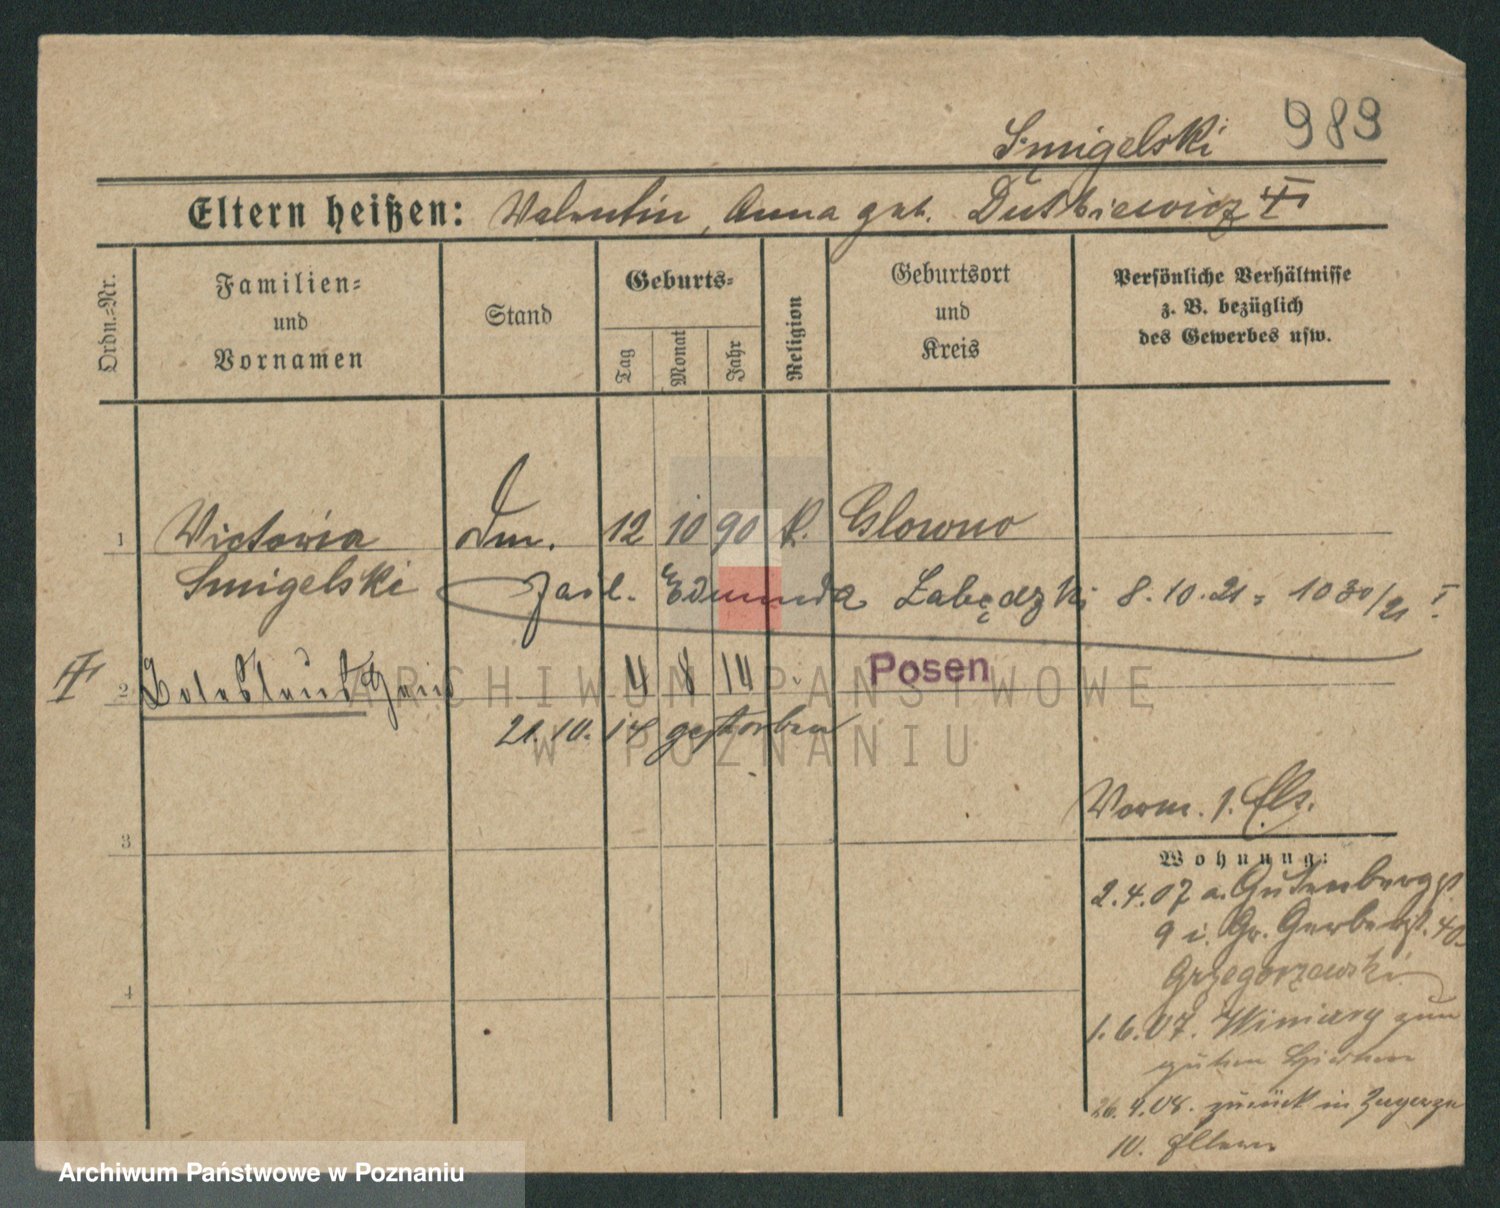 989
Smigelski
Eltern heißen: Valentin, Anna geb. Dutkiewicz
Ordn.-Nr.
Familien-
und
Vornamen
Stand
Geburts-
Tag
Monat
Jahr
Religion
Geburtsort
und
Kreis
Persönliche Verhältnisse
z. B. bezüglich
des Gewerbes usw.
1 Victoria Dm. 12 10 90 k. Glowno
Smigelski
Edmunda Łabędzki 8.10.21 1030/21 I
2 Boleslaus 4 8 14 Posen
21.10.14 gestorben
ARCHIWUM PAŃSTWOWE
W POZNANIU
Vorm. 1. Els.
3
Wohnung:
2.4.07 a. Gutenbergst
9 i. Gr. Gerberst. 40
Grzegorzewski
4
1.6.07. Winiary zum
guten
26.4.08. zurück in
10. Eltern
Archiwum Państwowe w Poznaniu